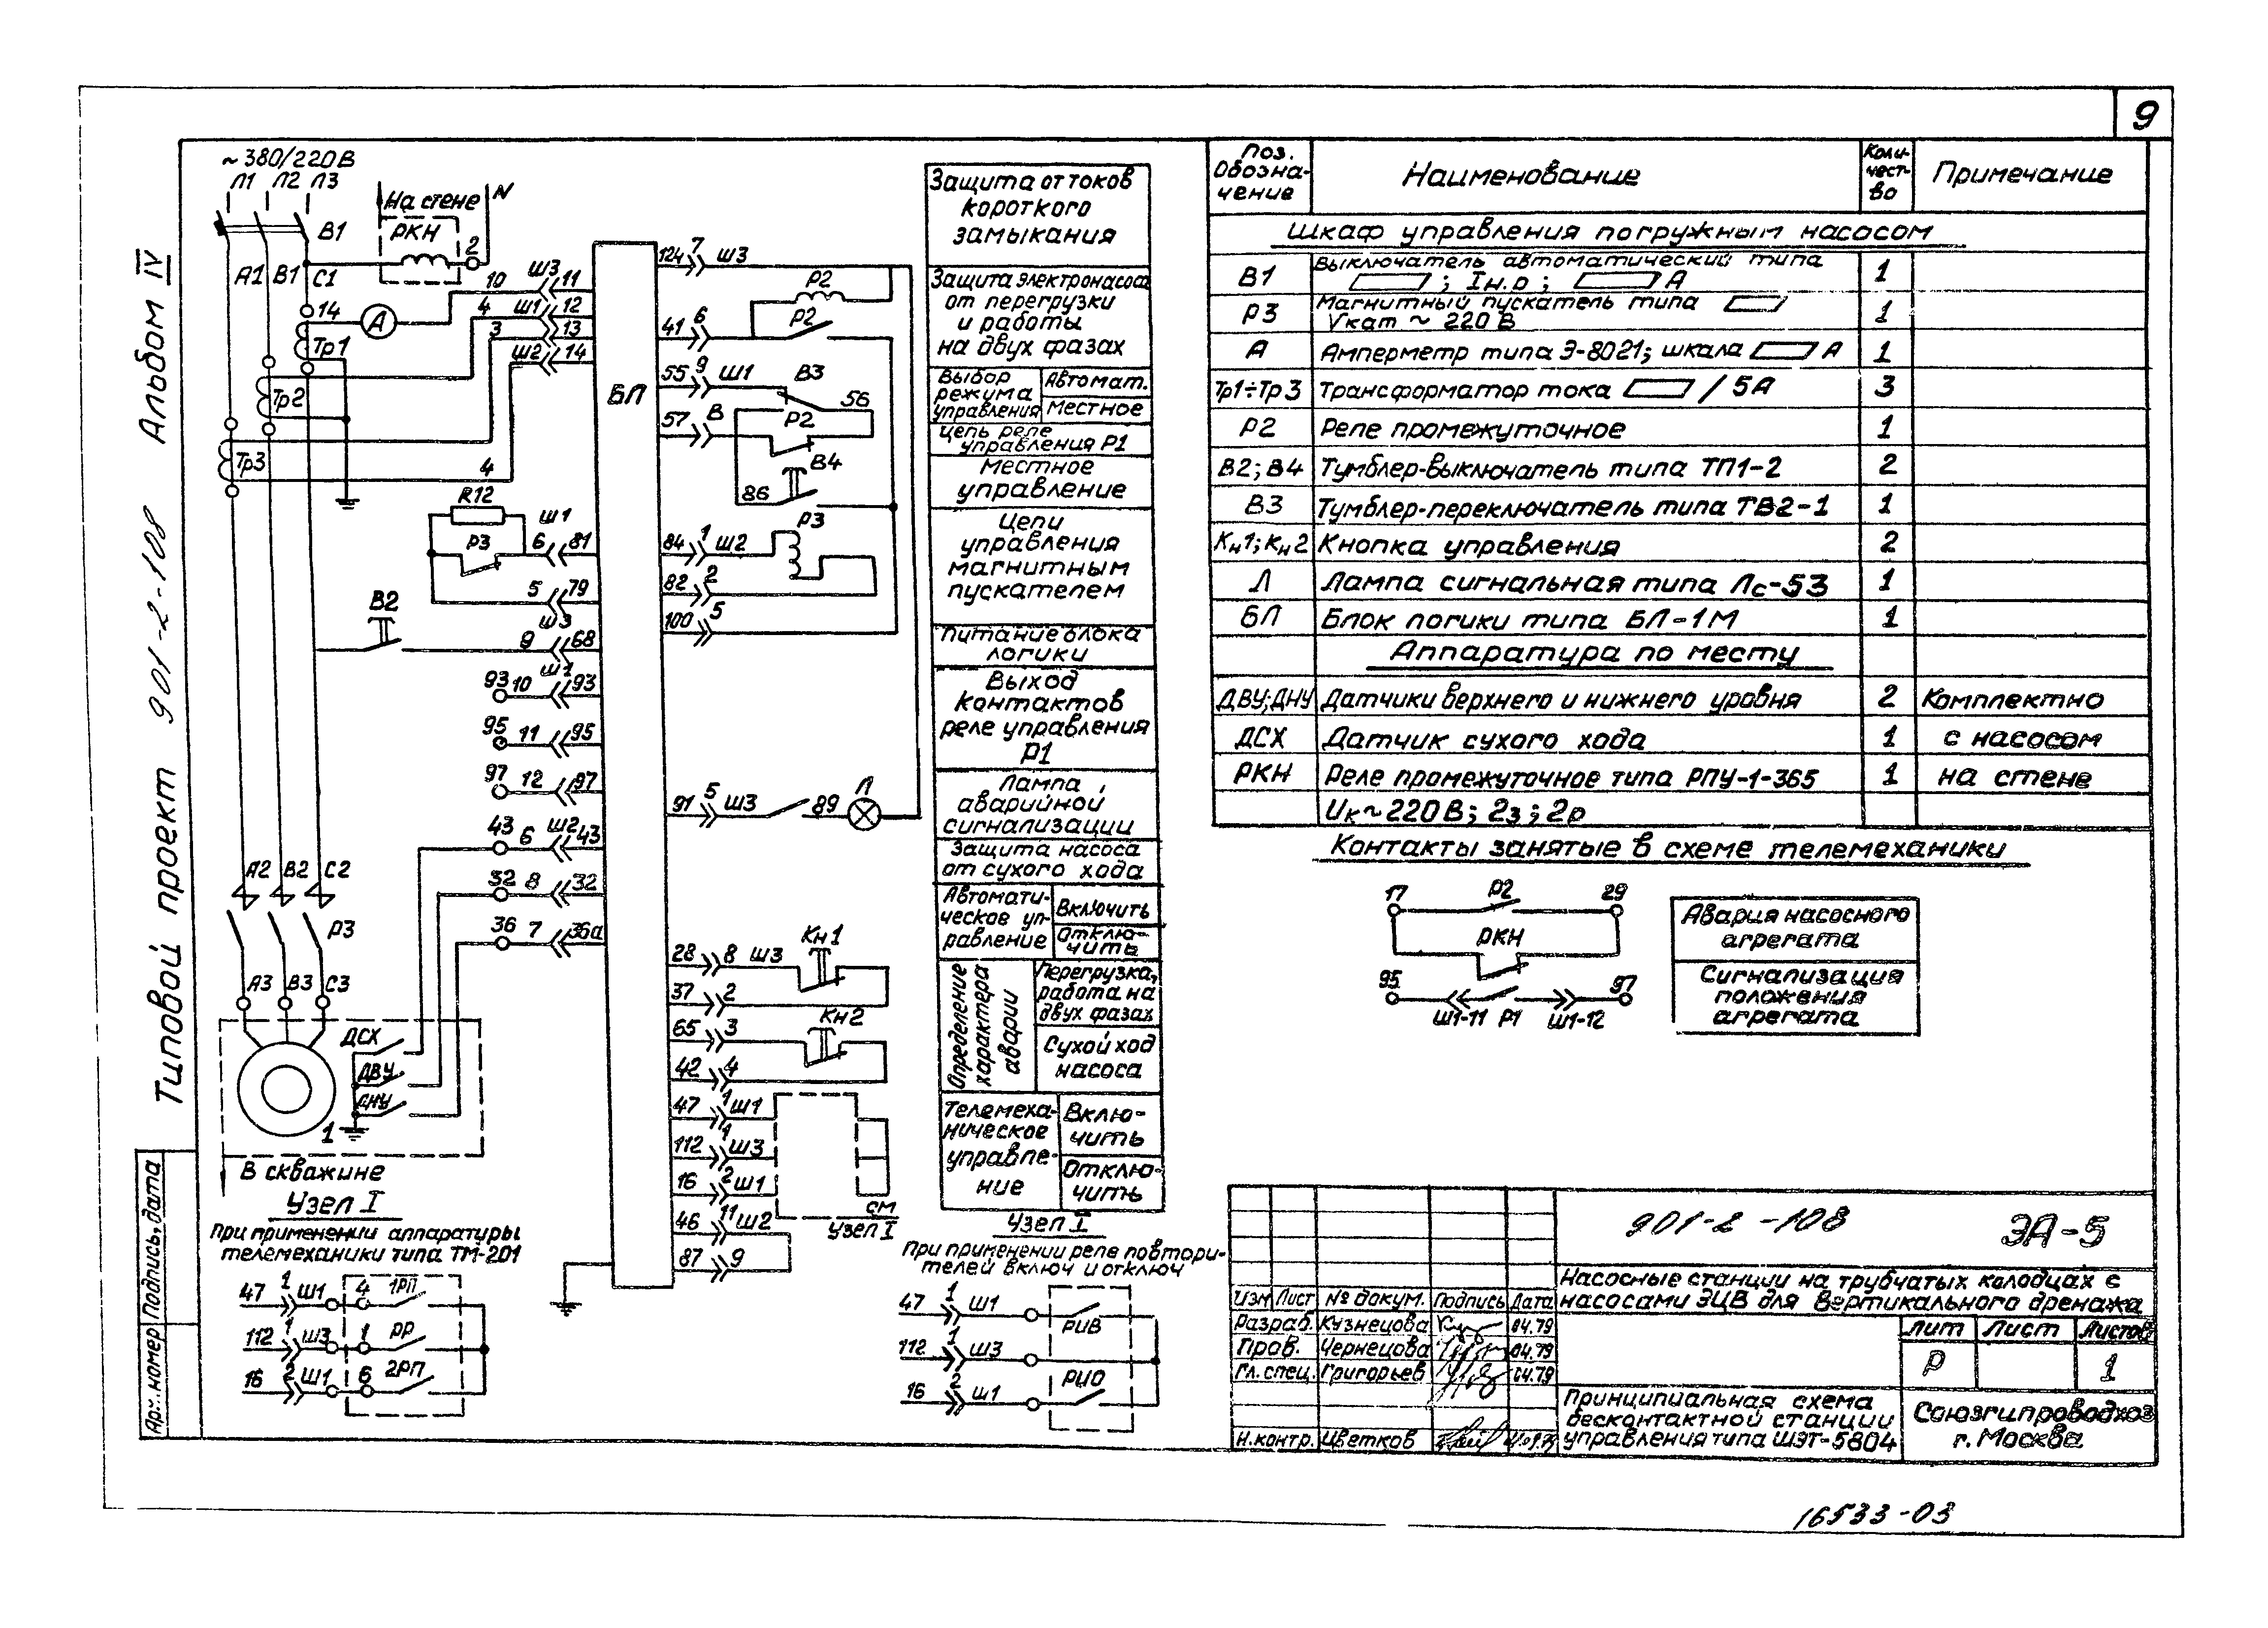 9
Типовой проект 901-2-108 Альбом IV
~380/220В
Л1 Л2 Л3
На стене
N
РКН
2
В1
А1 В1 С1
14
А
Тр1
Тр2
Тр3
10 Ш3 11
4 Ш1 12
3 13
Ш2 14
4
R12
Р3
Ш1
6 81
5 79
В2
Ш3
9 68
Ш1
93 10 93
95 11 95
97 12 97
43 6 Ш2 43
32 8 32
36 7 36а
А2 В2 С2
Р3
А3 В3 С3
ДСХ
ДВУ
ДНУ
1
В скважине
БЛ
124 7 Ш3
Р2
41 6
Р2
55 9 Ш1
В3
56
57 В
Р2
В4
86
84 1 Ш2
Р3
82 2
100 5
91 5 Ш3 89
Л
28 8 Ш3
Кн1
37 2
65 3
Кн2
42 4
47 1 Ш1
112 1 Ш3
16 2 Ш1
см
Узел I
46 11 Ш2
87 9
Защита от токов
короткого
замыкания
Защита электронасоса
от перегрузки
и работы
на двух фазах
Выбор
режима
управления
Автомат.
Местное
Цепь реле
управления Р1
Местное
управление
Цепи
управления
магнитным
пускателем
Питание блока
логики
Выход
контактов
реле управления
Р1
Лампа
аварийной
сигнализации
Защита насоса
от сухого хода
Автомати-
ческое уп-
равление
Включить
Отклю-
чить
Определение
характера
аварии
Перегрузка,
работа на
двух фазах
Сухой ход
насоса
Телемеха-
ническое
управле-
ние
Вклю-
чить
Отклю-
чить
Узел I
При применении аппаратуры
телемеханики типа ТМ-201
47 1 Ш1 4 1РП
112 1 Ш3 1 РР
16 2 Ш1 6 2РП
Узел I
При применении реле повтори-
телей включ и отключ
47 1 Ш1 РИВ
112 1 Ш3
16 2 Ш1 РИО
Поз.
Обозна-
чение
Наименование
Коли-
чест-
во
Примечание
Шкаф управления погружным насосом
В1 Выключатель автоматический типа 1
; Iн.р ; А
Р3 Магнитный пускатель типа 1
Vкат ~ 220 В
А Амперметр типа Э-8021; шкала А 1
Тр1÷Тр3 Трансформатор тока / 5А 3
Р2 Реле промежуточное 1
В2; В4 Тумблер-выключатель типа ТП1-2 2
В3 Тумблер-переключатель типа ТВ2-1 1
Кн1; Кн2 Кнопка управления 2
Л Лампа сигнальная типа Лс-53 1
БЛ Блок логики типа БЛ-1М 1
Аппаратура по месту
ДВУ; ДНУ Датчики верхнего и нижнего уровня 2 Комплектно
ДСХ Датчик сухого хода 1 с насосом
РКН Реле промежуточное типа РПУ-1-365 1 на стене
Uк~220В; 2з; 2р
Контакты занятые в схеме телемеханики
17 Р2 29
РКН
95 97
Ш1-11 Р1 Ш1-12
Авария насосного
агрегата
Сигнализация
положения
агрегата
901-2-108 ЭА-5
Насосные станции на трубчатых колодцах с
насосами ЭЦВ для вертикального дренажа
Изм Лист № докум. Подпись Дата
Разраб. Кузнецова 04.79
Пров. Чернецова 04.79
Гл. спец. Григорьев 04.79
Н.контр. Цветков
Лит Лист Листов
Р 1
Принципиальная схема
бесконтактной станции
управления типа ШЭТ-5804
Союзгипроводхоз
г. Москва
Подпись, дата
Арх. номер
16533-03